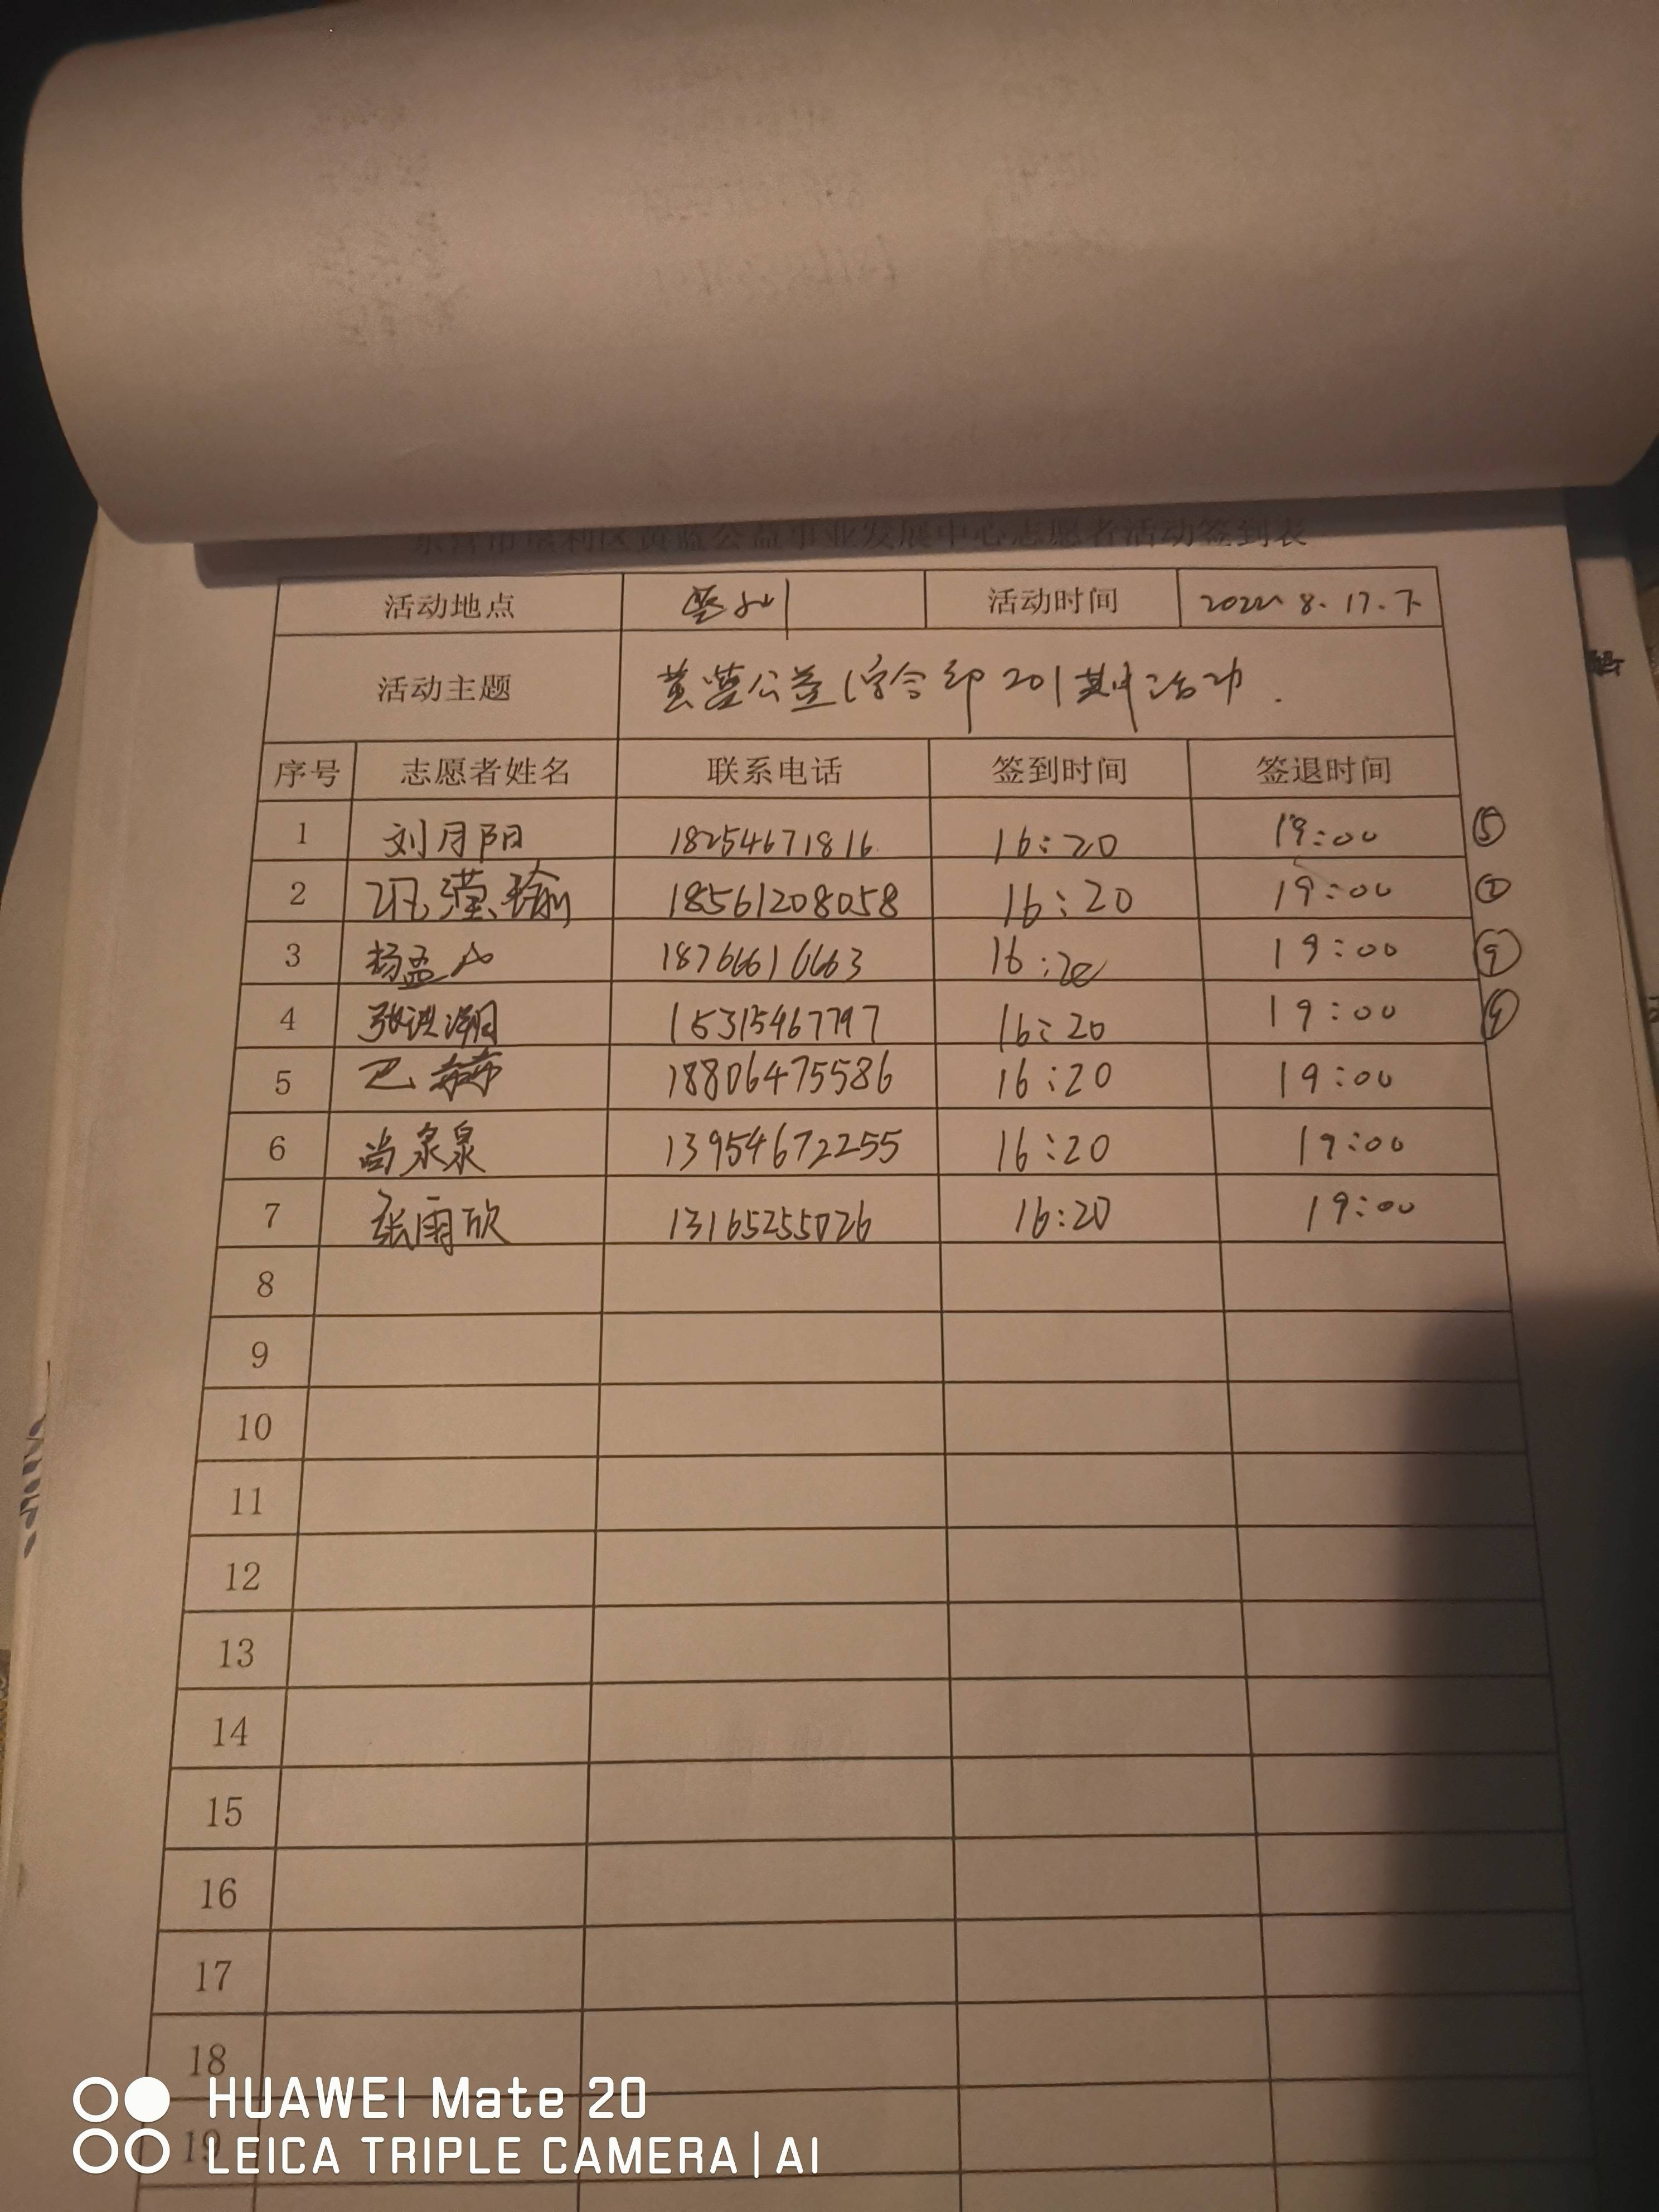 东营市垦利区黄蓝公益事业发展中心志愿者活动签到表
活动地点 垦利 活动时间 2022 8. 17. 下
活动主题 黄蓝公益 201期活动.
序号 志愿者姓名 联系电话 签到时间 签退时间
1 刘月阳 18254671816 16:20 19:00 ⑤
2 滢瑜 18561208058 16:20 19:00
3 杨孟 18766616663 16:20 19:00 ⑨
4 张洪湖 15315467797 16:20 19:00
5 巴赫 18806475586 16:20 19:00
6 尚泉泉 13954672255 16:20 19:00
7 张雨欣 13165255026 16:20 19:00
8
9
10
11
12
13
14
15
16
17
18
19
HUAWEI Mate 20
LEICA TRIPLE CAMERA | AI